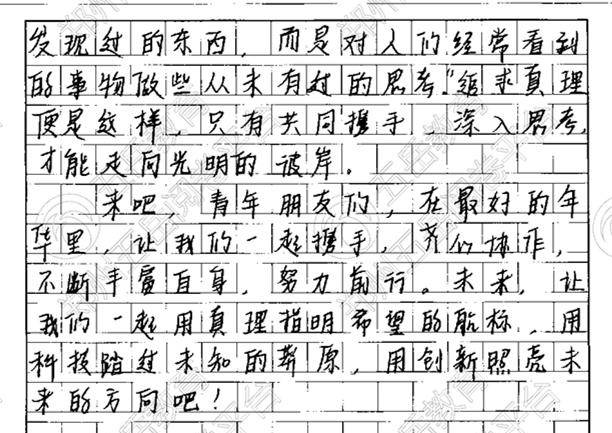 发现过的东西，而是对人们经常看到
的事物做些从未有过的思考。"追求真理
便是这样，只有共同携手，深入思考，
才能走向光明的彼岸。
来吧，青年朋友们，在最好的年
华里，让我们一起携手，齐心协作，
不断丰富自身，努力前行。未来，让
我们一起用真理指明希望的航标，用
科技踏过未知的莽原，用创新照亮未
来的方向吧！